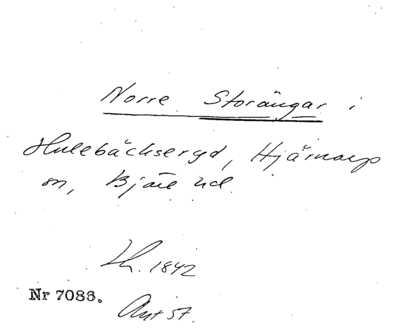 Norre Storängar i
Hulebäckseryd, Hjärnarp
sn, Bjäre hd.
Lh. 1842
Nr 7088.
Ant st.